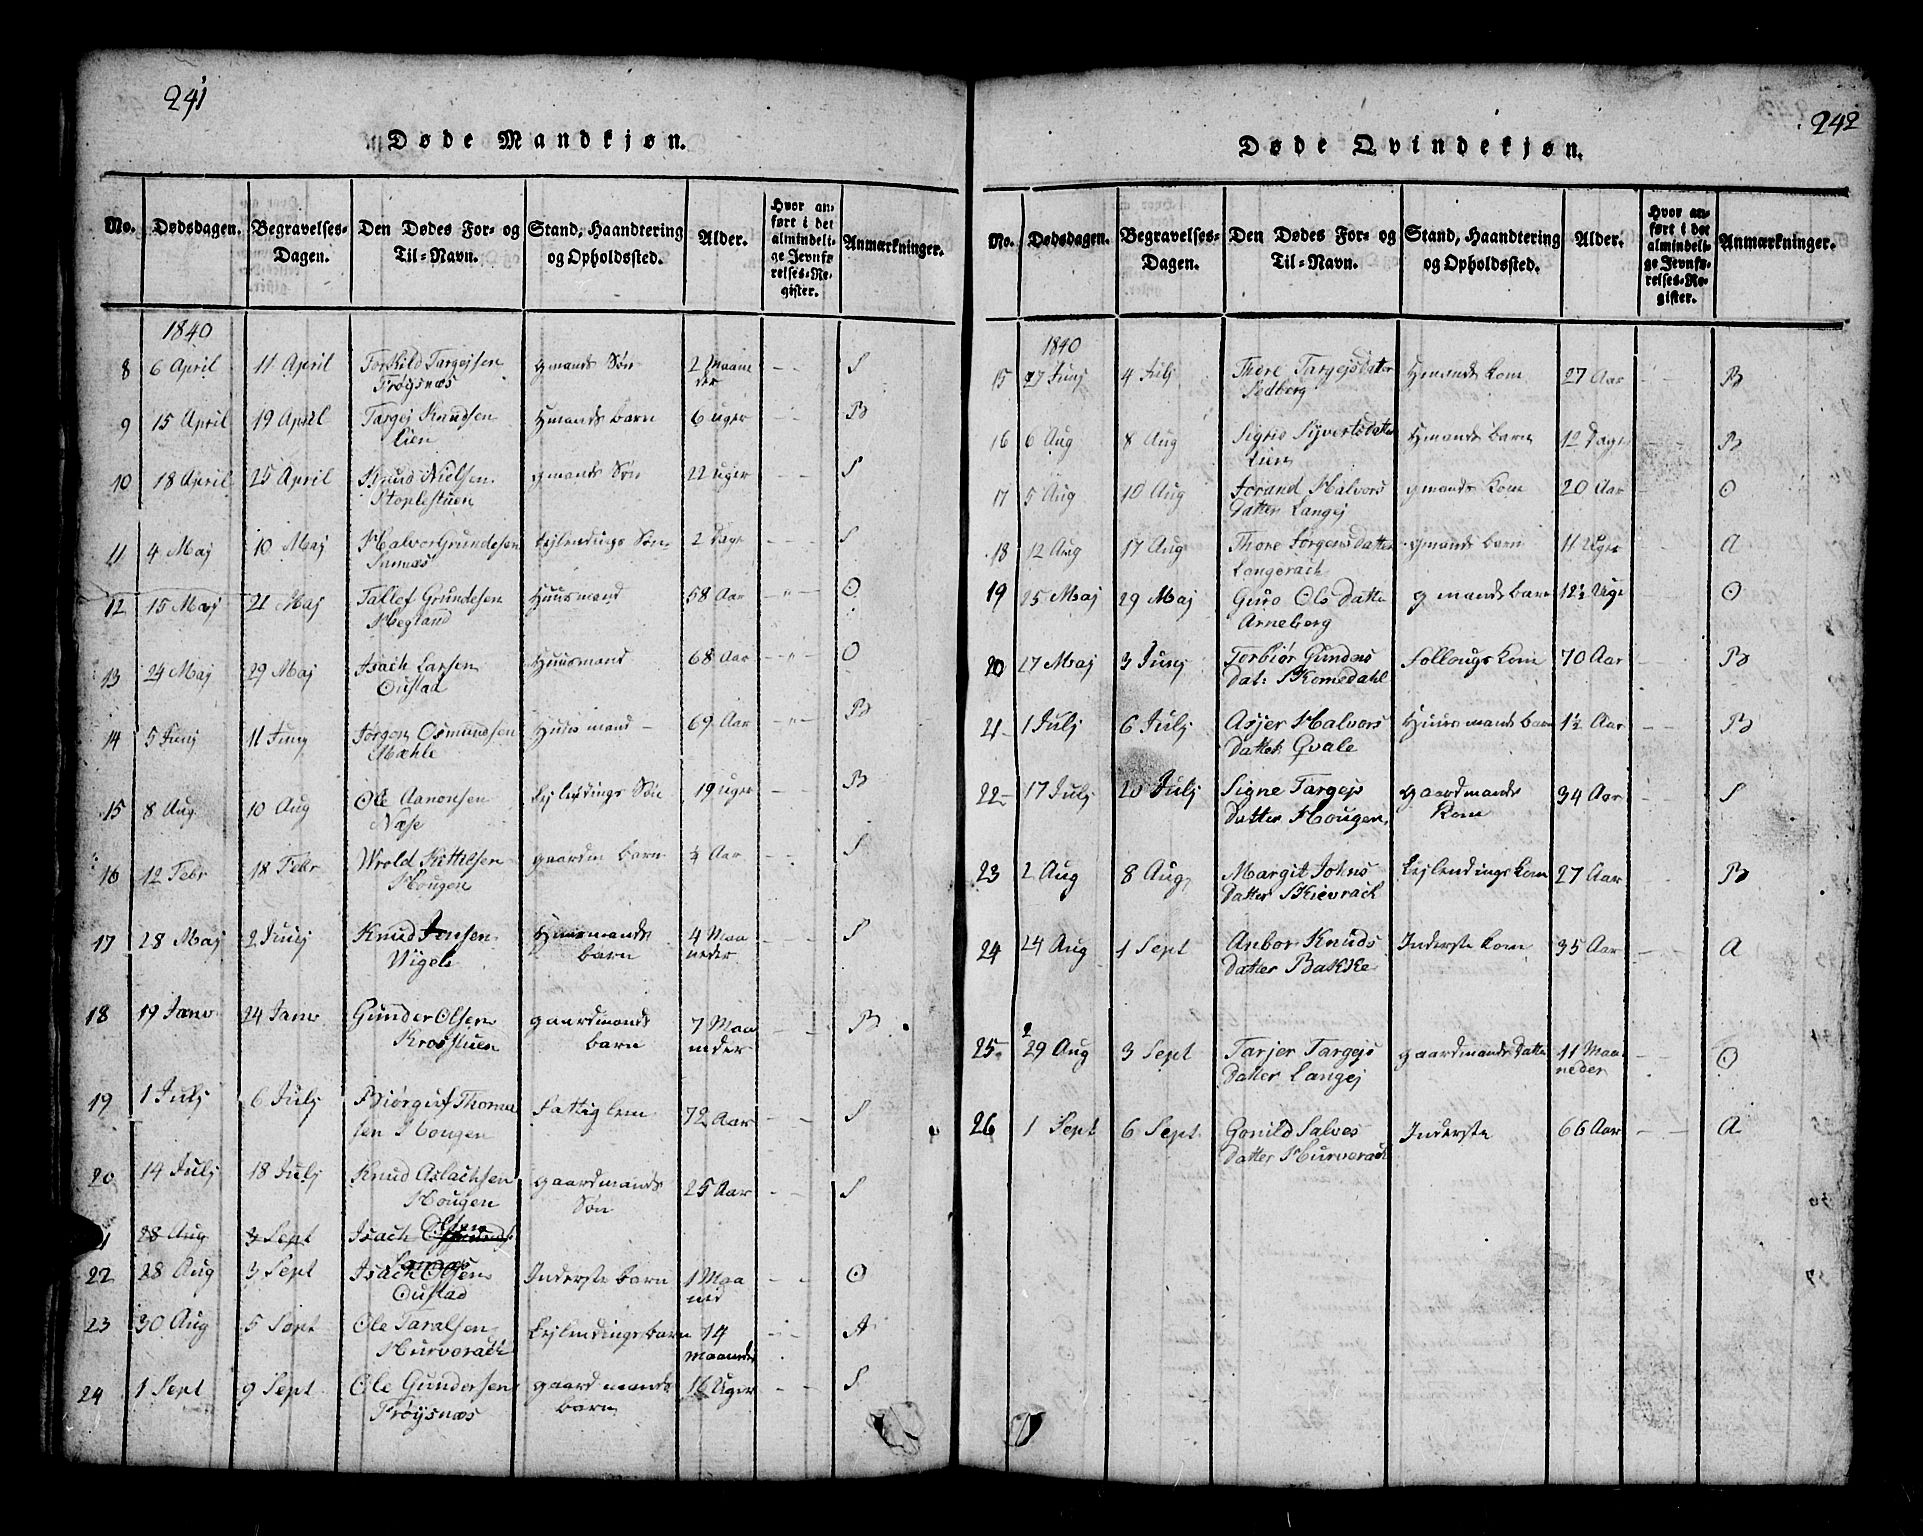 241
Døde Mandkjøn.
No. Dødsdagen. Begravelses-Dagen. Den Dødes For- og Til-Navn. Stand, Haandtering og Opholdssted. Alder. Hvor anført i det almindelige Jevnførelses-Register. Anmærkninger.
1840
8 6 April 11 April Torkild Targejsen gmands Søn 2 Maane - - S
Frøysnæs der
9 15 April 19 April Targej Knudsen Hmands barn 6 uger - - B
Lien
10 18 April 25 April Knud Nielsen gmands Søn 22 uger - - S
Stoplestuen
11 4 Maj 10 Maj Halvor Grundesen Lejlendings Søn 2 Dage - - S
12 15 Maj 21 Maj Tallef Grundesen Huusmand 58 Aar - " - O
Hegland
13 24 Maj 29 Maj Isach Larsen Huusmand 68 Aar - " - O
Oustad
14 5 Junj 11 Junj Jørgen Osmundsen Huusmand - 69 Aar - " - B
Mæhle
15 8 Aug 10 Aug Ole Aanonsen Lejlendings Søn 19 uger - - B
Næse
16 12 Febr 18 Febr Wrold Kittelsen gaardm barn ¼ Aar - - S
Hougen
17 28 Maj 2 Junj Knud Jensen Huusmands 4 Maa - - S
Uigeli barn neder
18 19 Janv 24 Janv Gunder Olsen gaardmands 7 Maa - - B
Krosstuen barn neder
19 1 Julj 6 Julj Biørguf Thoma Fattig lem 72 Aar - - S
sen Hougen
20 14 Julj 18 Julj Knud Aslachsen gaardmands 25 Aar - - S
Hougen Søn
28 Aug 3 Sept Isach Olsen
22 28 Aug 3 Sept Isach Olsen Inderste barn 1 Maa - - O
Oustad ned
23 30 Aug 5 Sept Ole Taralsen Lejlendings barn 14 - - A
Hurvorach maaneder
24 1 Sept 9 Sept Ole Gundersen gaardmands 16 Uger - - S
Frøysnæs barn
242
Døde Qvindekjøn.
No. Dødsdagen. Begravelses-Dagen. Den Dødes For- og Til-Navn. Stand, Haandtering og Opholdssted. Alder. Hvor anført i det almindelige Jevnførelses-Register. Anmærkninger.
1840
15 27 Junj 4 Julj Thore Targejsdatter Hmands kom 27 Aar - - B
Sedberg
16 6 Aug 8 Aug Sigrid Syvertsdatter Hmands barn 12 Dage - - B
Lien
17 5 Aug 10 Aug Jorand Halvors gmands kom 20 Aar - - O
Datter Langej
18 12 Aug 17 Aug Thore Jørgensdatter gmands barn 11 Uger - - A
Langerach
19 25 Maj 29 Maj Guro Ols Datte gmands barn 12½ Uge - - O
Arneberg
20 27 Maj 3 Junj Torbiør Gunders Sollougs kom 70 Aar - - B
Dat: Skomedahl
21 1 Julj 6 Julj Asjer Halvors Huusmands barn 1½ Aar - - B
Datter Qvale
22 17 Julj 20 Julj Signe Targejs gaardmands 34 Aar - - S
Datter Hougen kom
23 2 Aug 8 Aug Margit Johns Lejlendings kom 27 Aar - - B
Datter Skievrach
24 24 Aug 1 Sept Anbor Knuds Inderste kom 35 Aar - - A
Datter Bakke
25 29 Aug 3 Sept Tarjer Targejs gaardmands Datte 11 Maa - - O
Datter Langej neder
26 1 Sept 6 Sept Gonild Salves Inderste 66 Aar - - A
Datter Hurvorach